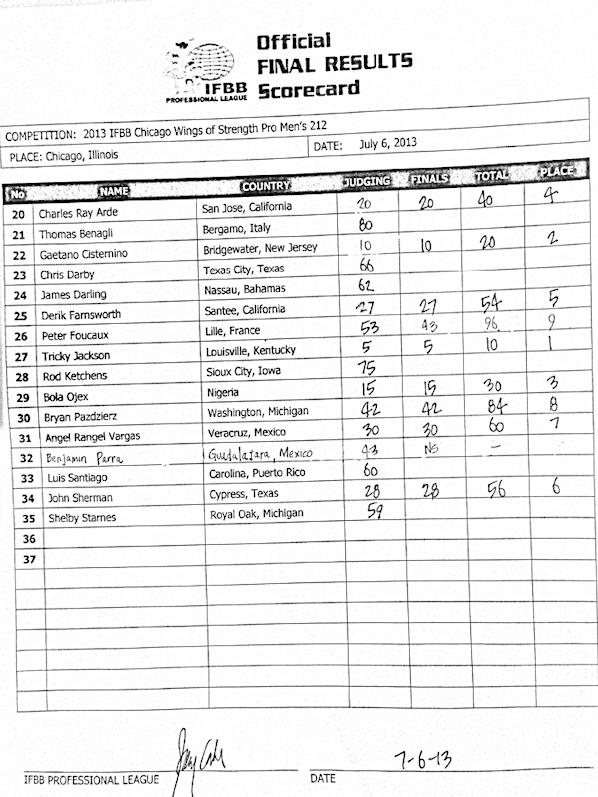 Official
FINAL RESULTS
Scorecard
IFBB
PROFESSIONAL LEAGUE
COMPETITION: 2013 IFBB Chicago Wings of Strength Pro Men's 212
PLACE: Chicago, Illinois DATE: July 6, 2013
No NAME COUNTRY JUDGING FINALS TOTAL PLACE
20 Charles Ray Arde San Jose, California 20 20 40 4
21 Thomas Benagli Bergamo, Italy 80
22 Gaetano Cisternino Bridgewater, New Jersey 10 10 20 2
23 Chris Darby Texas City, Texas 66
24 James Darling Nassau, Bahamas 62
25 Derik Farnsworth Santee, California 27 27 54 5
26 Peter Foucaux Lille, France 53 43 96 9
27 Tricky Jackson Louisville, Kentucky 5 5 10 1
28 Rod Ketchens Sioux City, Iowa 75
29 Bola Ojex Nigeria 15 15 30 3
30 Bryan Pazdzierz Washington, Michigan 42 42 84 8
31 Angel Rangel Vargas Veracruz, Mexico 30 30 60 7
32 Benjamin Parra Guadalajara, Mexico 43 NS —
33 Luis Santiago Carolina, Puerto Rico 60
34 John Sherman Cypress, Texas 28 28 56 6
35 Shelby Starnes Royal Oak, Michigan 59
36
37
7-6-13
IFBB PROFESSIONAL LEAGUE DATE